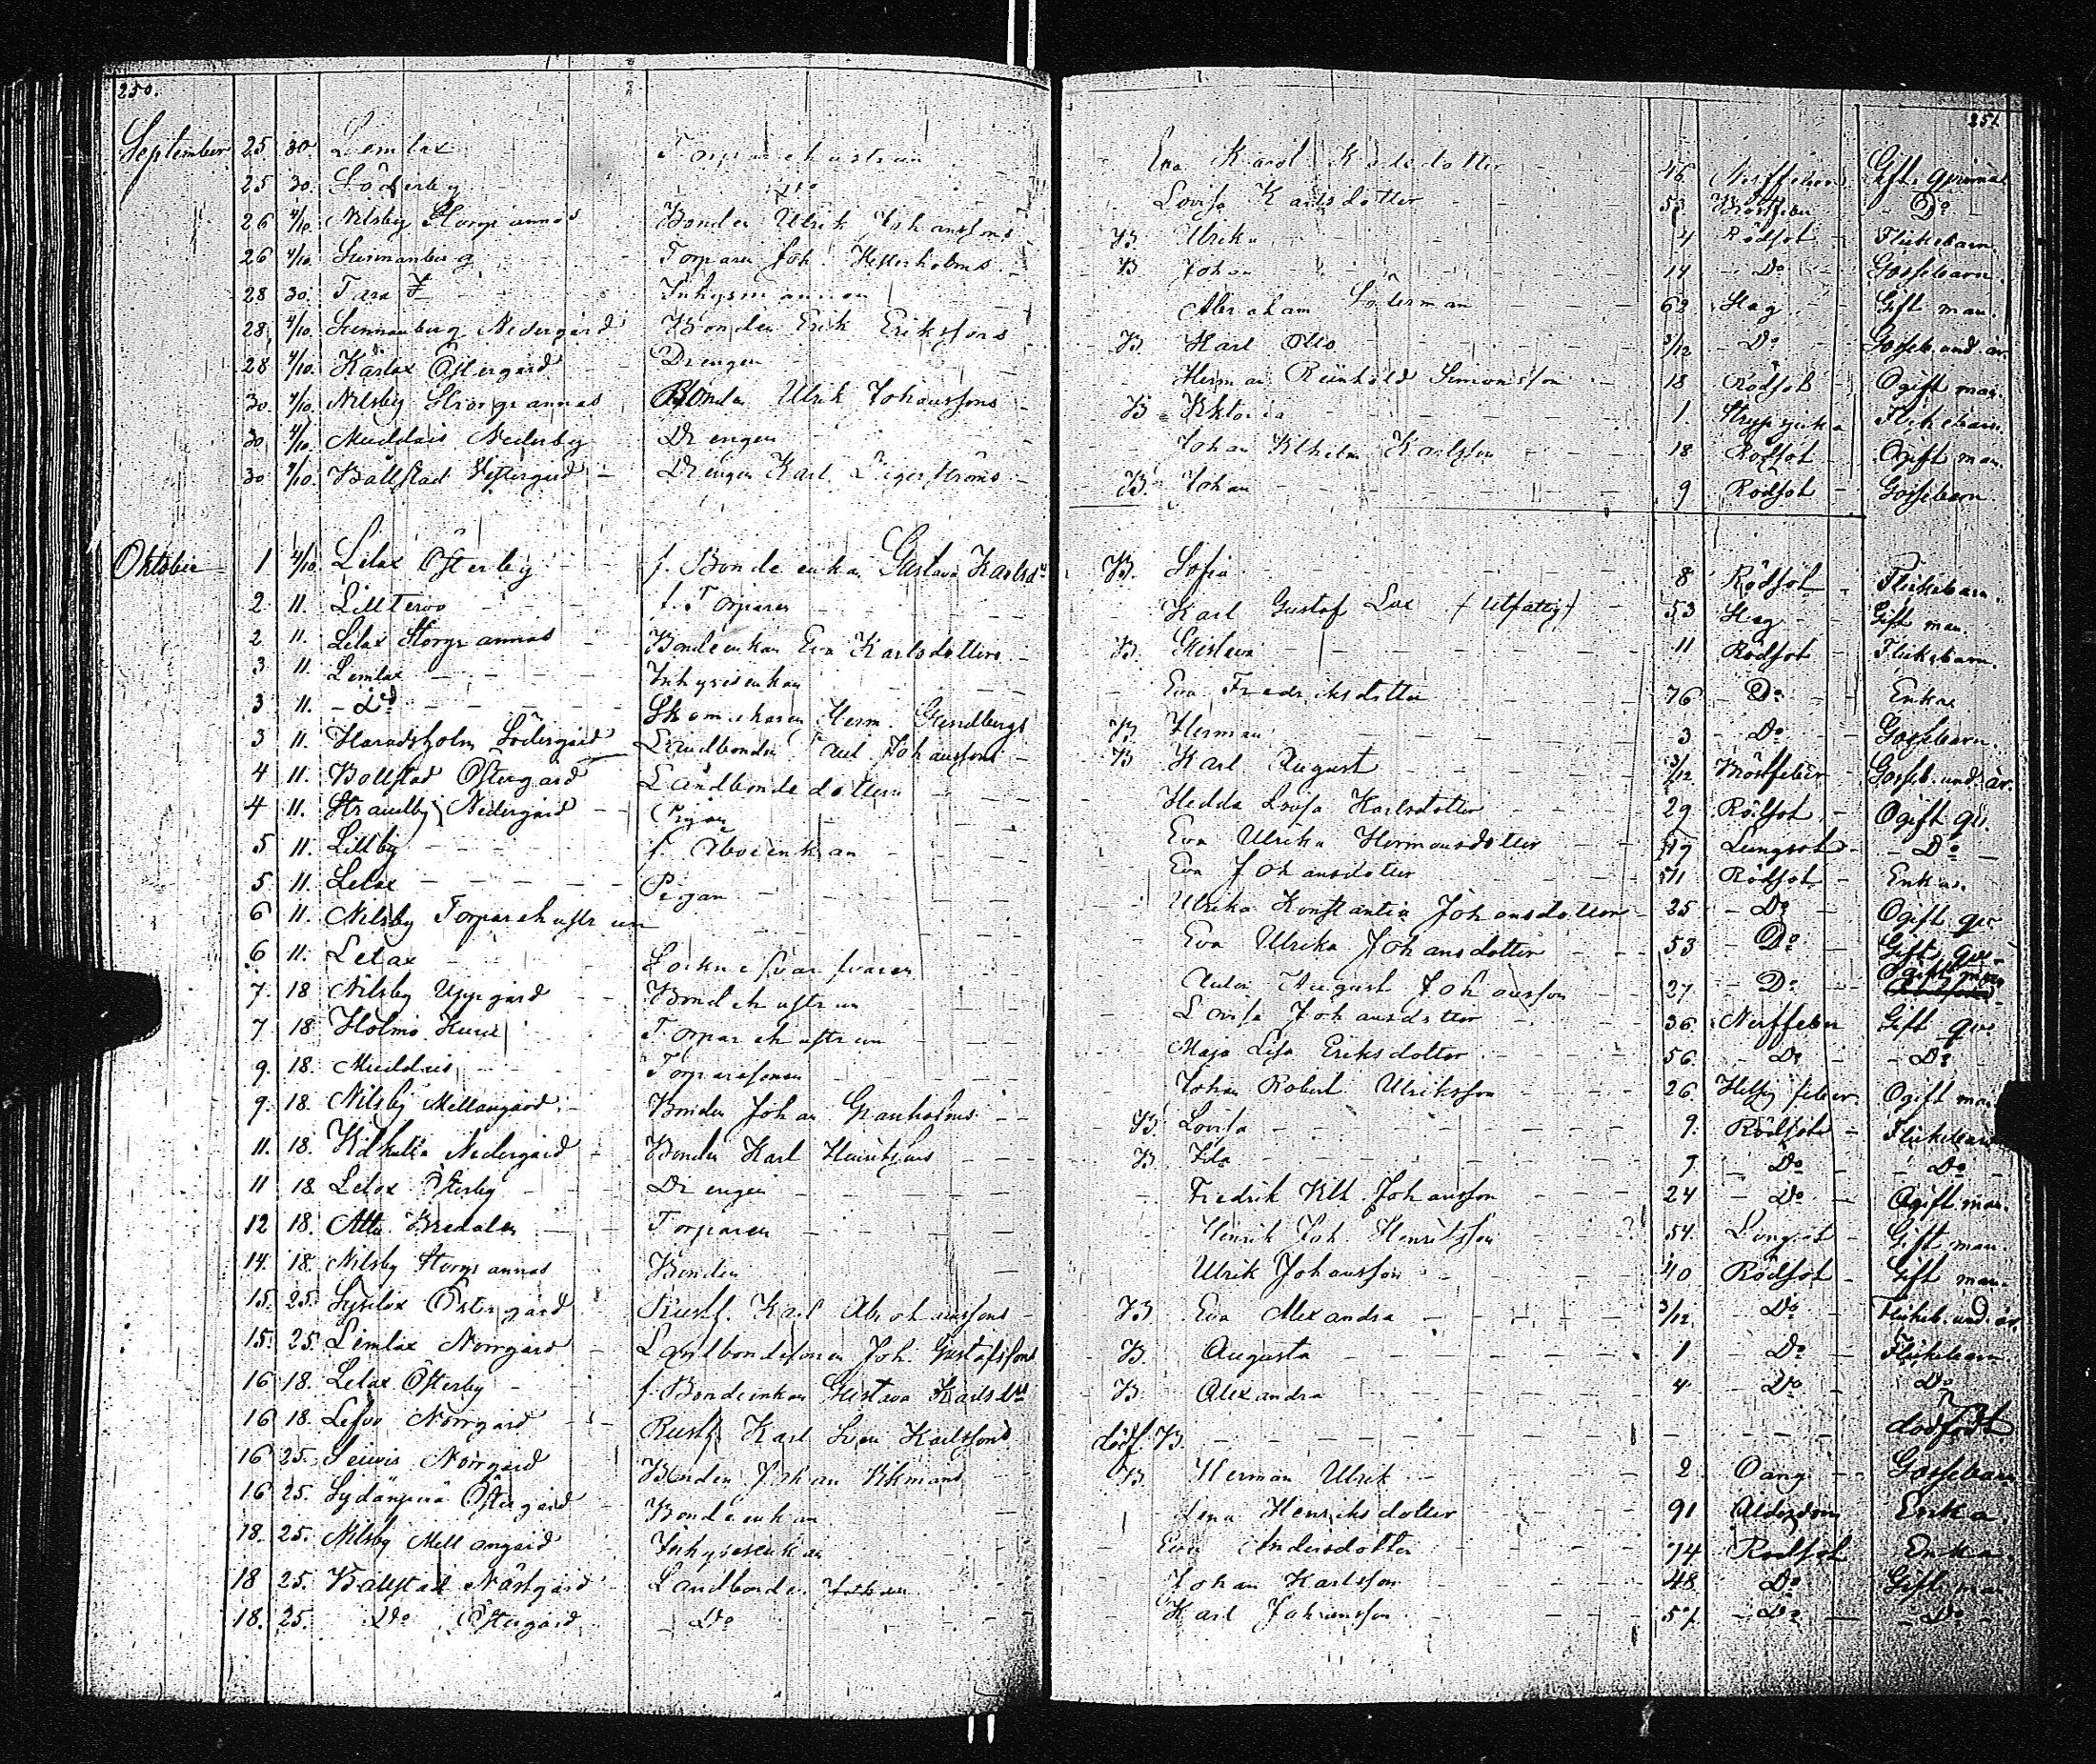 250.
251
September 25 30. Lemlax Torparehustrun Eva Karol. Karlsdotter 46 Nerffeber Gift qvinna
25 30. Söderby Do Lovisa Karlsdotter 53 Bröstfeber Do
26 4/10. Nilsby Storgrannas Bonden Ulrik Johanssons B. Ulrika 4 Rödsot Flickebarn.
26 4/10. Torparen Joh. B Johan 14 Do Gossebarn
28 30. Inhysmannen Abraham Söderman 62 Håg Gift man.
28 4/10. Nedergård Bonden Erik Erikssons B. Karl Otto 3/12 Do Gosseb. und. år
28 4/10. Kärlax Östergård Drengen Herman Reinhold Simonsson 18 Rödsot Ogift man.
30. 4/10. Nilsby Storgrannas Bonden Ulrik Johanssons B. Viktoria 1. Strypsjuka Flickebarn
30 4/10. Muddais Nederby Drengen Johan Vilhelm Karlsson 18 Rödsot Ogift man.
30 4/10. Bollstad Vestergård Drengen Karl Segerströms B. Johan 9 Rödsot Gossebarn.
Oktober 1 4/10. Lelax Österby f. Bondeenkan Gustava Karlsdr B. Sofia 8 Rödsot Flickebarn.
2. 11. Lilltervo f. Torparen Karl Gustaf Lax (utfattig) 53 Håg Gift man.
2 11. Lelax Storgrannas Bondeenkan Eva Karlsdotters B. Gustava 11 Rödsot Flickebarn.
3 11. Lemlax Inhysesenkan Eva Fredriksdotter 76 Do Enka
3 11. Do Skomakaren Herm. Grundbergs B Herman 3 Do Gossebarn.
3 11. Haradsholm Södergård Landbonden Karl Johanssons B Karl August 3/12 Bröstfeber Gosseb. und. år.
4 11. Bollstad Östergård Landbondedottern Hedda Lovisa Karlsdotter 29 Rödsot Ogift qv.
4 11. Strandby Nedergård Pigan Eva Ulrika Hermansdotter 19 Lungsot Do
5 11. Lillby f. Åboenkan Eva Johansdotter 71 Rödsot Enka.
5 11. Lelax Pigan Ulrika Konstantia Johansdotter 25 Do Ogift qv
6 11. Nilsby Torparehustrun Eva Ulrika Johansdotter 53 Do Gift qv.
6 11. Lelax Sockneskräddaren Anton August Johansson 27 Do Ogift man
7. 18 Nilsby Uppgård Bondehustrun Lovisa Johansdotter 36. Nerffeber Gift qv.
7 18 Holmo Torparehustrun Maja Lisa Eriksdotter 56. Do Do
9. 18. Muddais Torparesonen Johan Robert Ulriksson 26. Ogift man
9. 18. Nilsby Mellangård Bonden Johan Granholms B. Lovisa 9. Rödsot Flickebarn
11. 18. Nedergård Bonden Karl Henrikssons B. Ida 7 Do Do
11 18. Lelax Österby Drengen Fredrik Vilh. Johansson 24 Do Ogift man.
12 18. Attu Bredalen Torparen Henrik Joh. Henriksson 54. Lungsot Gift man.
14. 18. Nilsby Storgrannas Bonden Ulrik Johansson 40 Rödsot Gift man.
15. 25. Östergård Rusth. Karl Abrahamssons B. Eva Alexandra 3/12. Do Flickeb. und. år.
15. 25. Lemlax Norrgård Landbondesonen Joh. Gustafssons B. Augusta 1 Do Flickebarn.
16 18. Lelax Österby f. Bondeenkan Gustava Karlsdr B. Alexandra 4 Do Do
16 18. Norrgård Rusth. Karl Karlssons dödf. B. dödfödt
16 25. Norrgård Bonden Johan Vikmans B. Herman Ulrik 2 Gossebarn
16 25. Sydänperä Östergård Bondeenkan Lena Henriksdotter 91 Ålderdom Enka.
18. 25. Nilsby Mellangård Inhysesenkan Eva Andersdotter 74 Rödsot Enka.
18 25. Bollstad Landbonden Johan Karlsson 48 Do Gift man
18. 25. Do Östergård Do Karl Johansson 57. Do Do